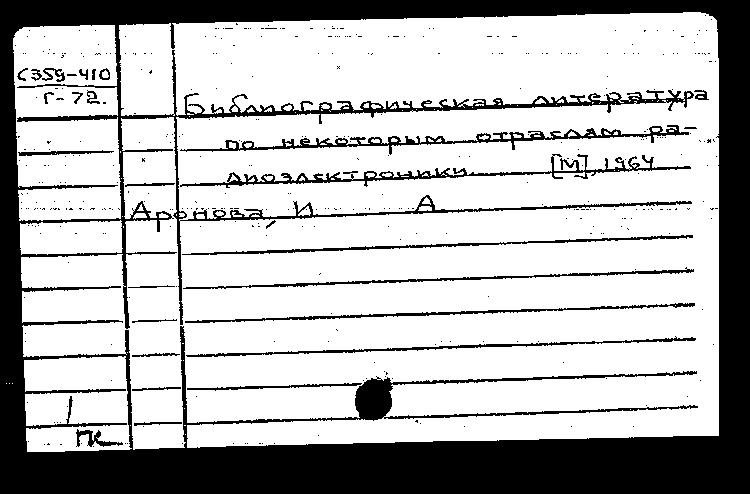 С359-410
Г-72.
Библиографическая литература
по некоторым отраслям ра-
диоэлектроники. [М], 1964
Аронова, И А
1
ПК